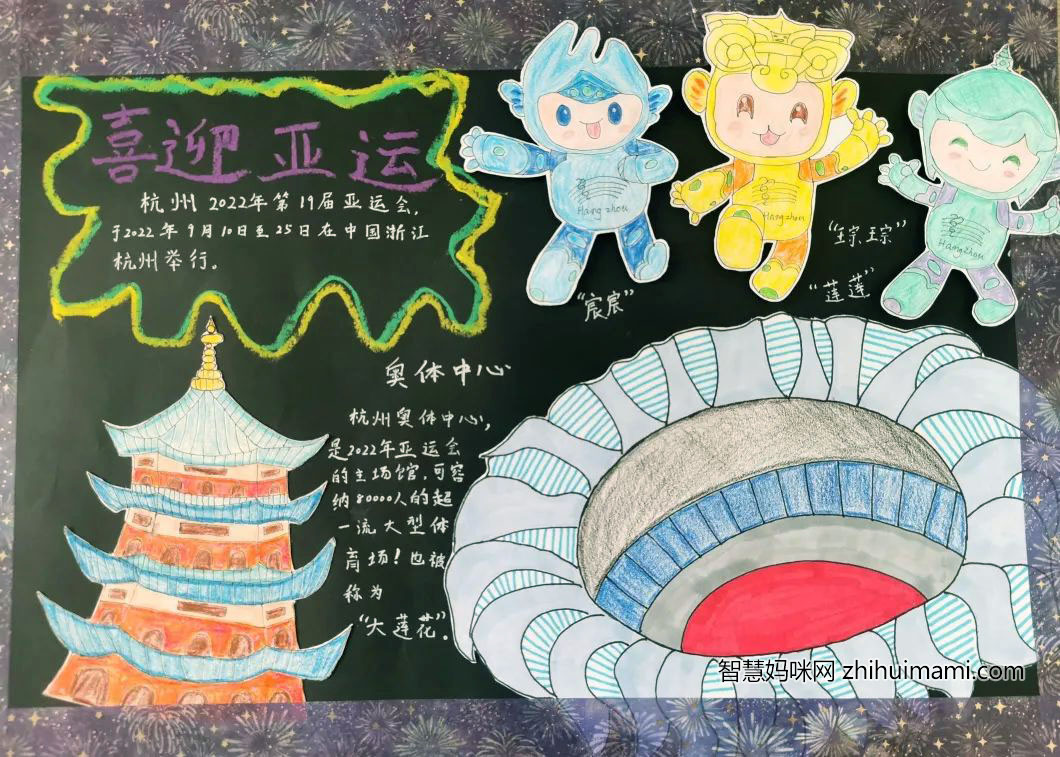 喜迎亚运
杭州2022年第19届亚运会,
于2022年9月10日至25日在中国浙江
杭州举行。
Hangzhou
Hangzhou
Hangzhou
“宸宸”
“琮琮”
“莲莲”
奥体中心
杭州奥体中心,
是2022年亚运会
的主场馆,可容
纳80000人的超
一流大型体
育场!也被
称为
“大莲花”.
智慧妈咪网 zhihuimami.com